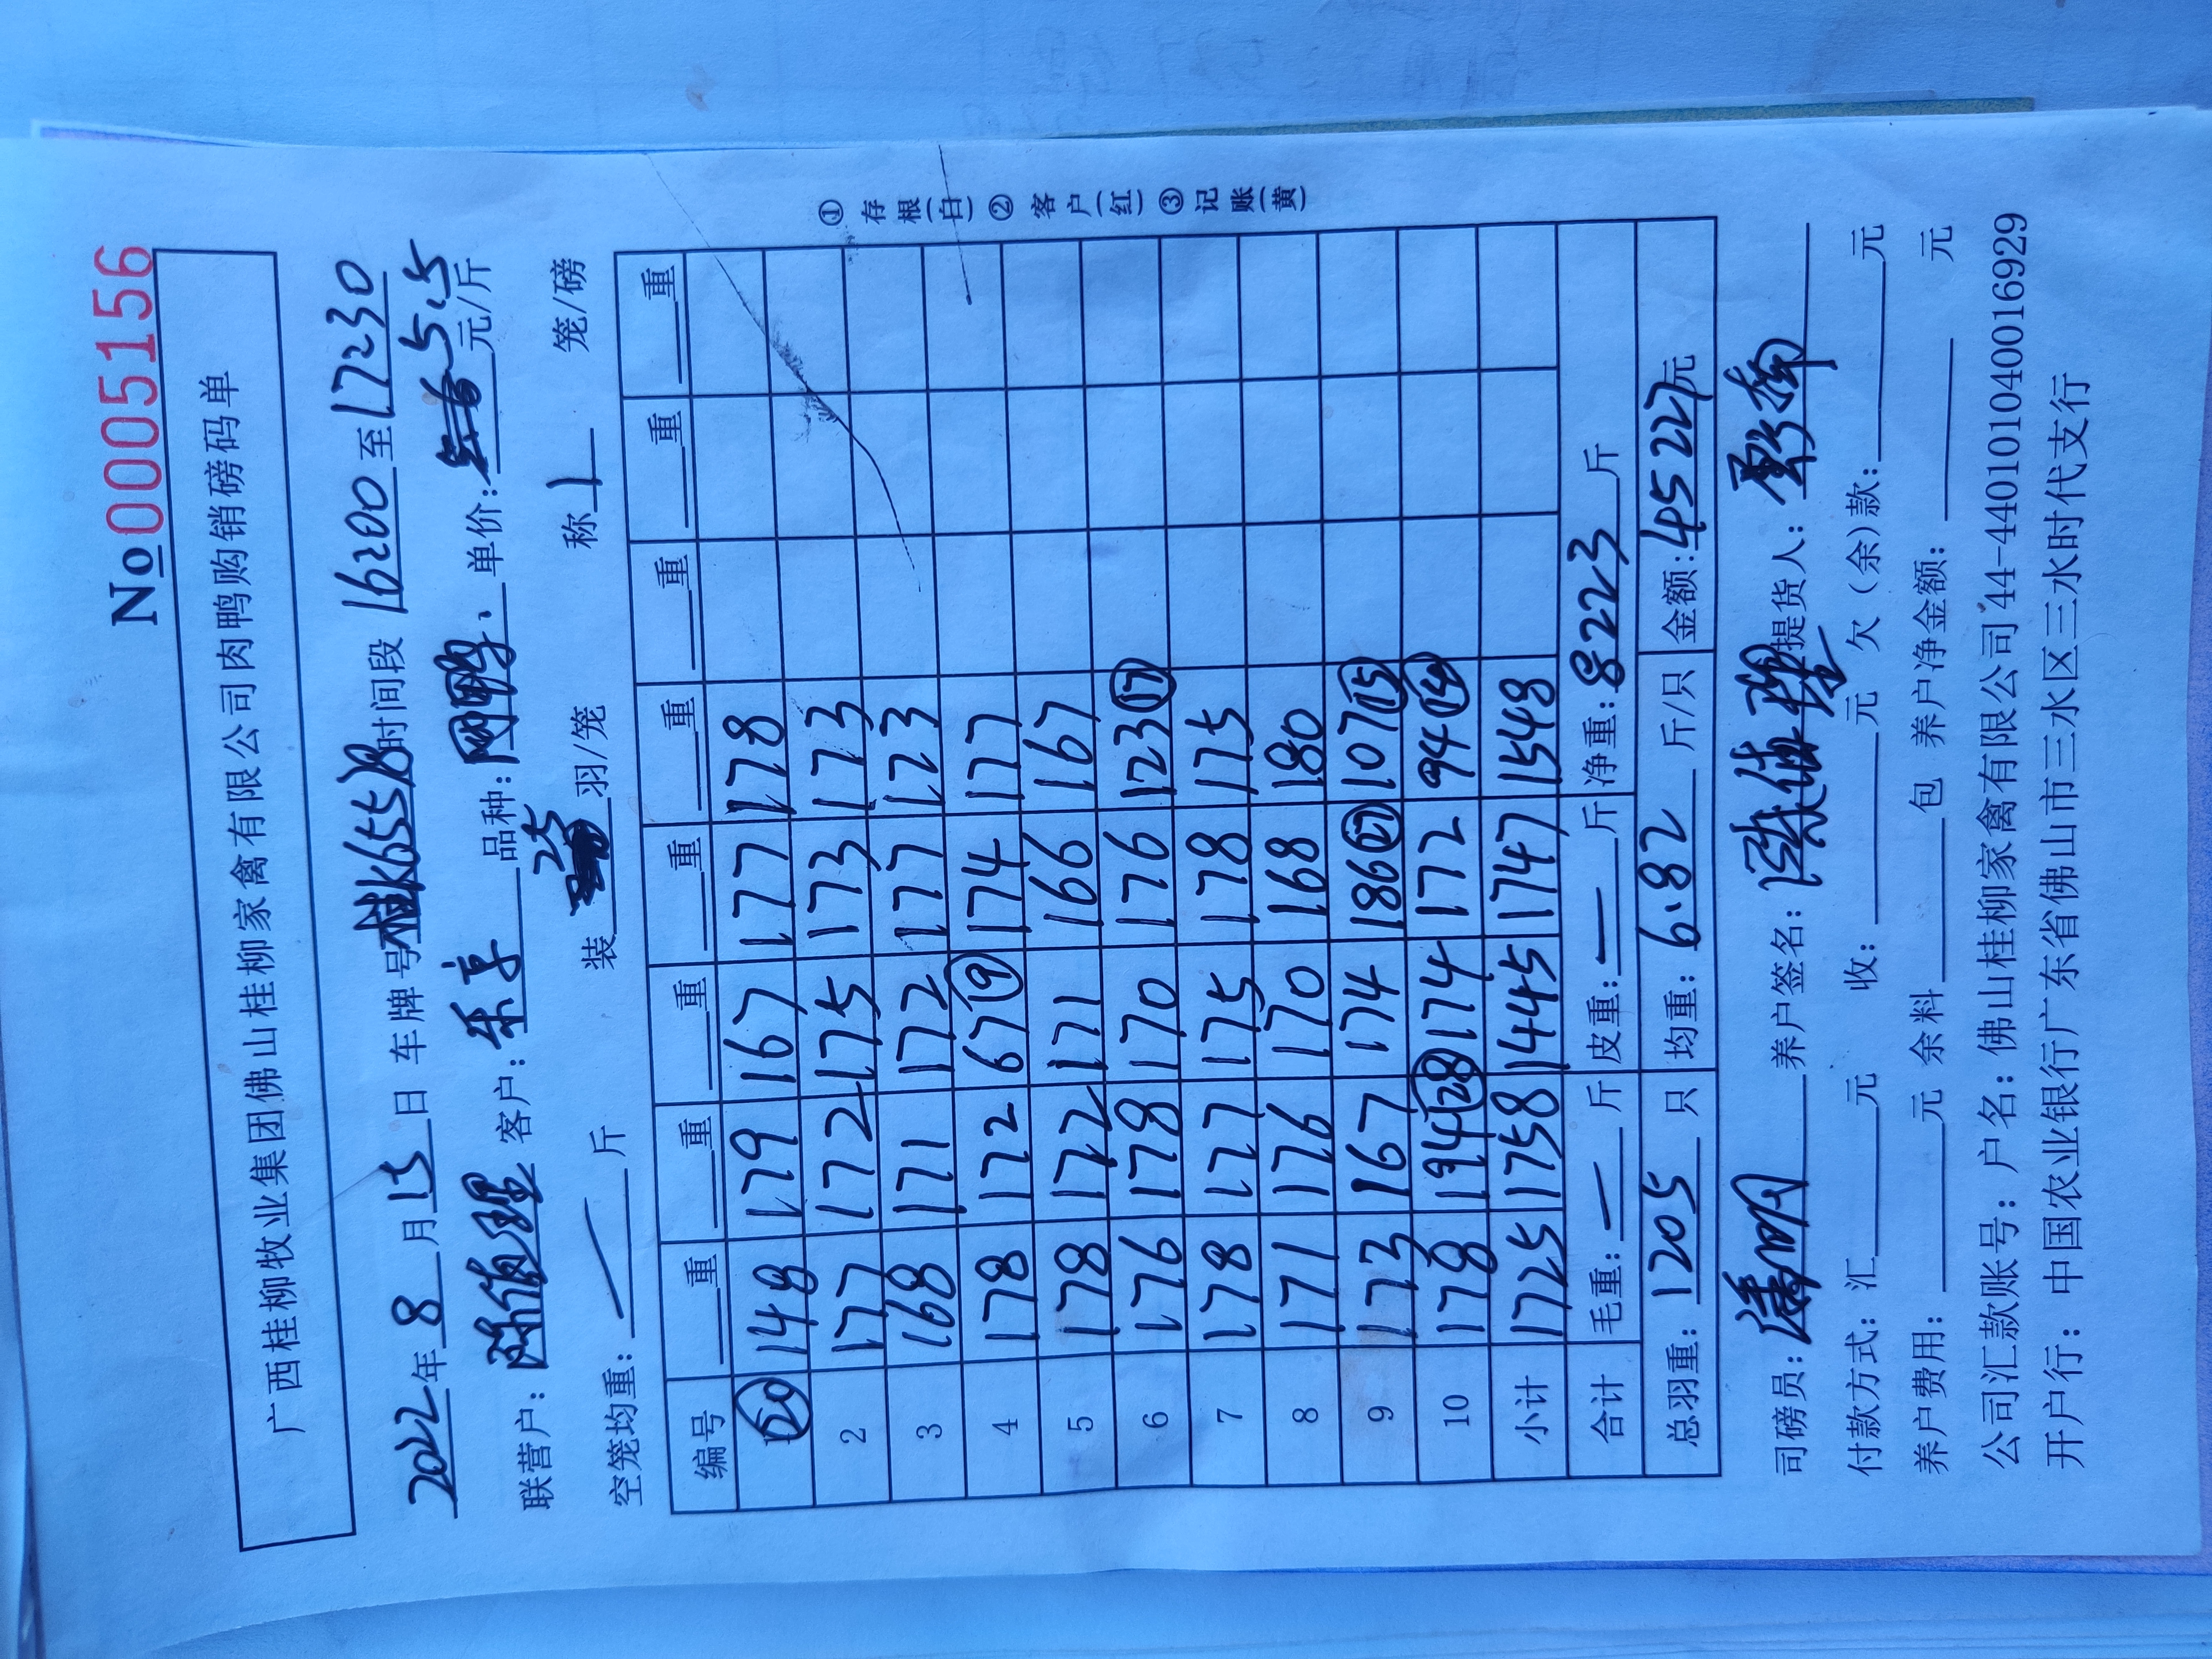 No 0005156
广西桂柳牧业集团佛山桂柳家禽有限公司肉鸭购销磅码单
2022年8月15日 车牌号桂K655 时间段 16200至17230
联营户: 客户: 乐享 品种: 单价: 5.5元/斤
空笼均重: 斤 装 25 羽/笼 称 1 笼/磅
编号 重 重 重 重 重 重 重 重
1 20 148 179 167 177 178
2 177 172 175 173 173
3 168 171 172 177 173
4 178 172 67 9 174 177
5 178 172 171 166 167
6 176 178 170 176 123 17
7 178 177 175 178 175
8 171 176 170 168 180
9 173 167 174 186 27 107 15
10 178 194 28 174 172 94 14
小计 1725 1758 1445 1747 1548
合计 毛重: 斤 皮重: 斤 净重: 8223 斤
总羽重: 1205 只 均重: 6.82 斤/只 金额: 45227元
① 存根(白) ② 客户(红) ③ 记账(黄)
司磅员: 养户签名: 提货人:
付款方式: 汇 元 收: 元 欠(余)款: 元
养户费用: 元 余料 包 养户净金额: 元
公司汇款账号: 户名: 佛山桂柳家禽有限公司 44-440101040016929
开户行: 中国农业银行广东省佛山市三水区三水时代支行